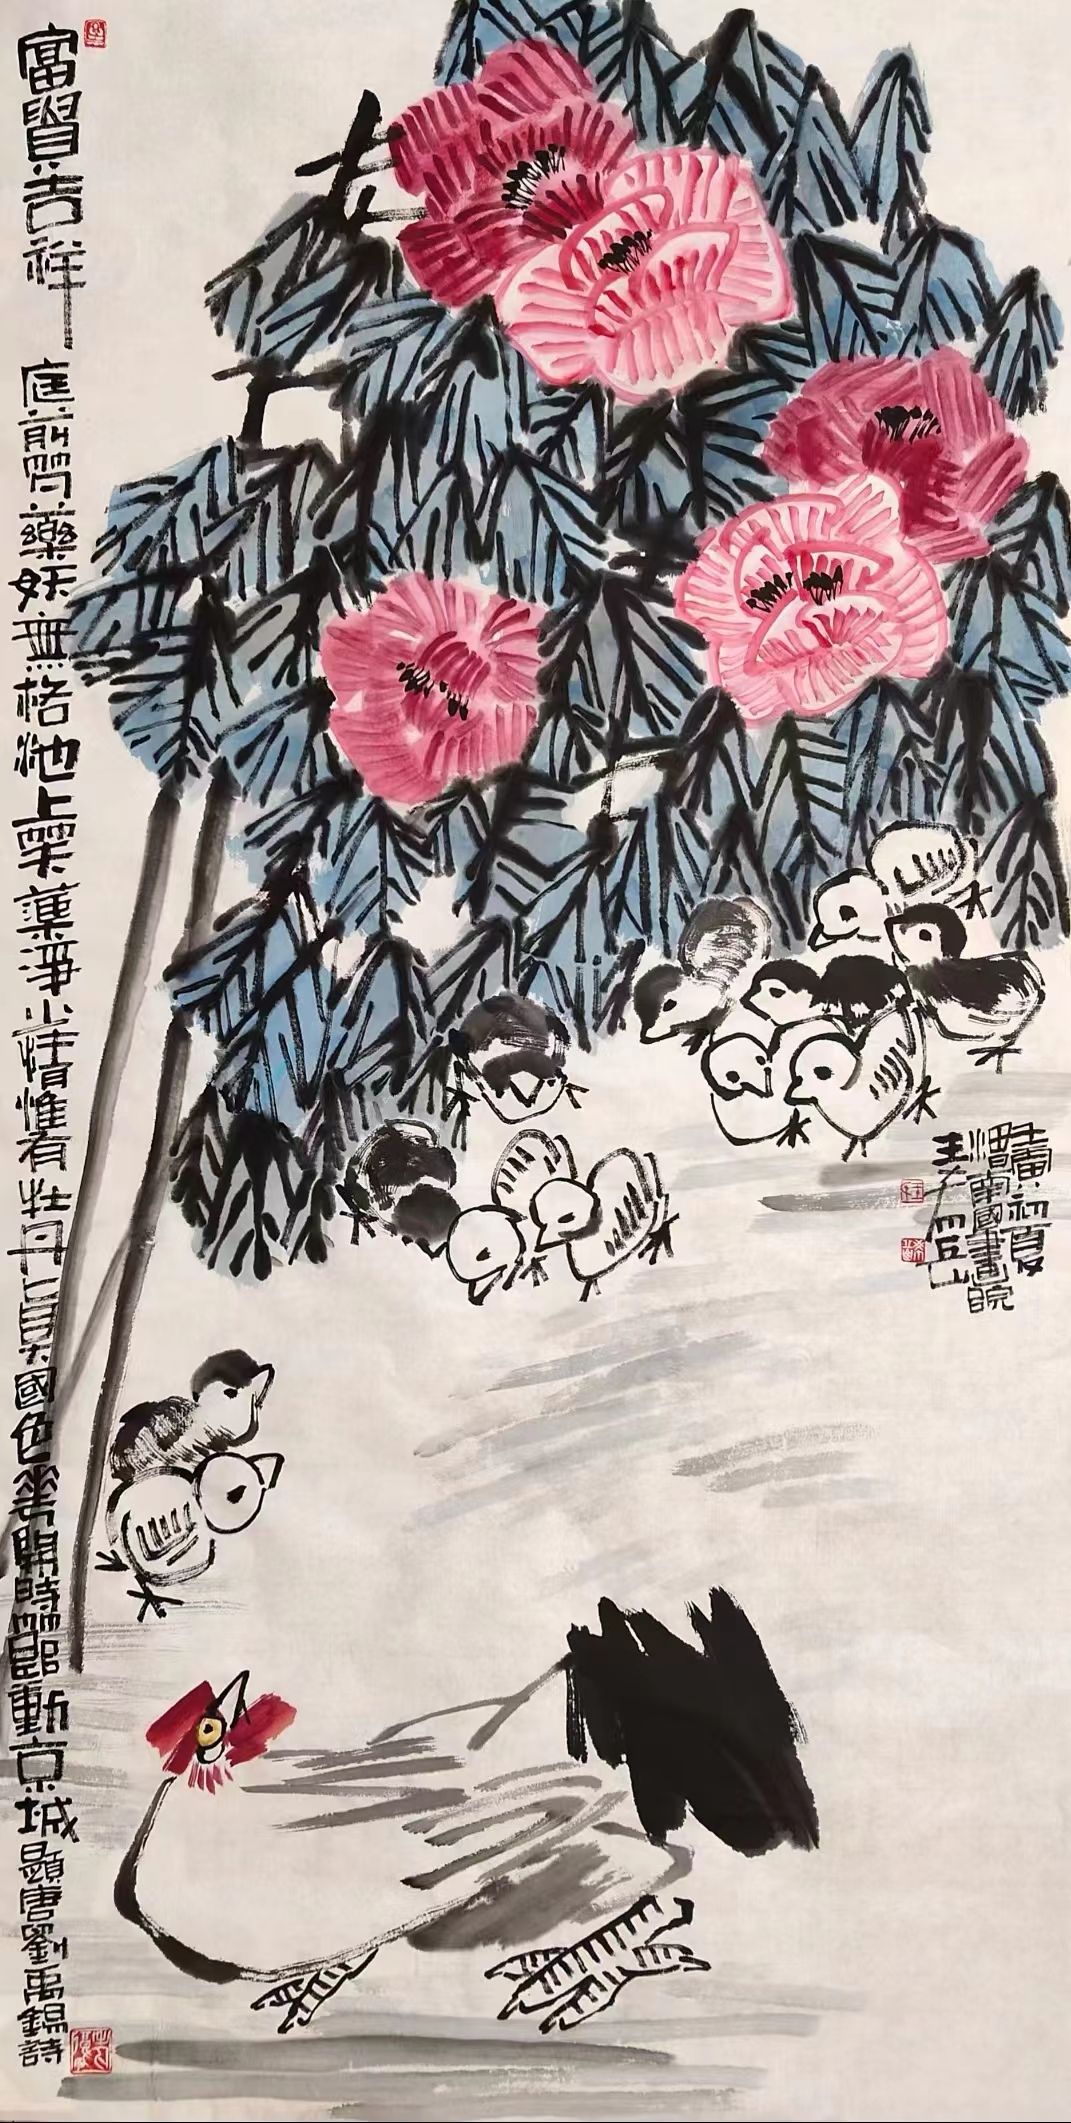 富貴吉祥 庭前芍藥妖無格池上芙蕖淨少情惟有牡丹真國色華開時節動京城 題唐劉禹錫詩
壬寅初夏
潭南國畫院
王